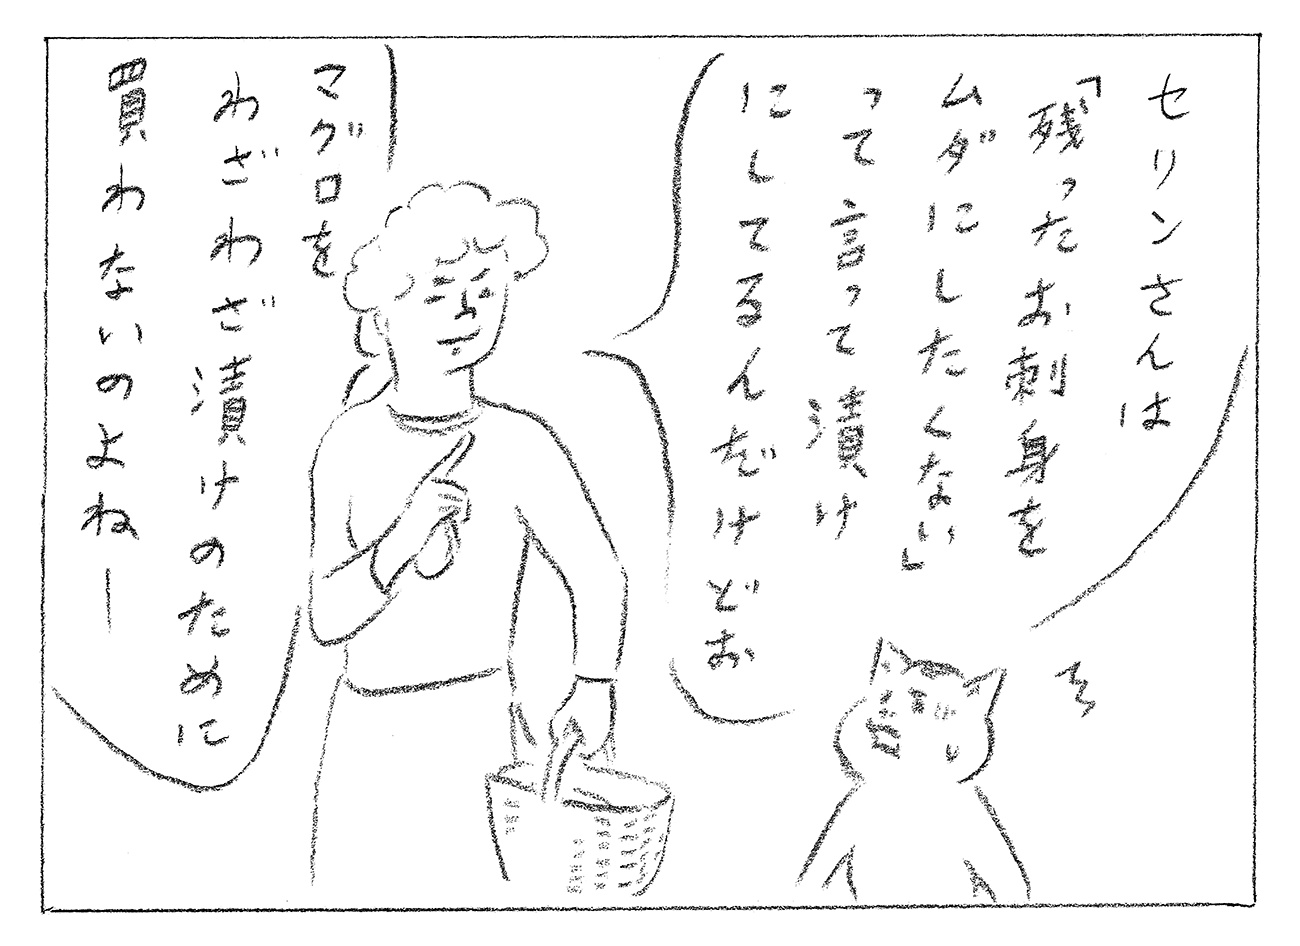 セリンさんは
「残ったお刺身を
ムダにしたくない」
って言って漬け
にしてるんだけどお
マグロを
わざわざ漬けのために
買わないのよねー